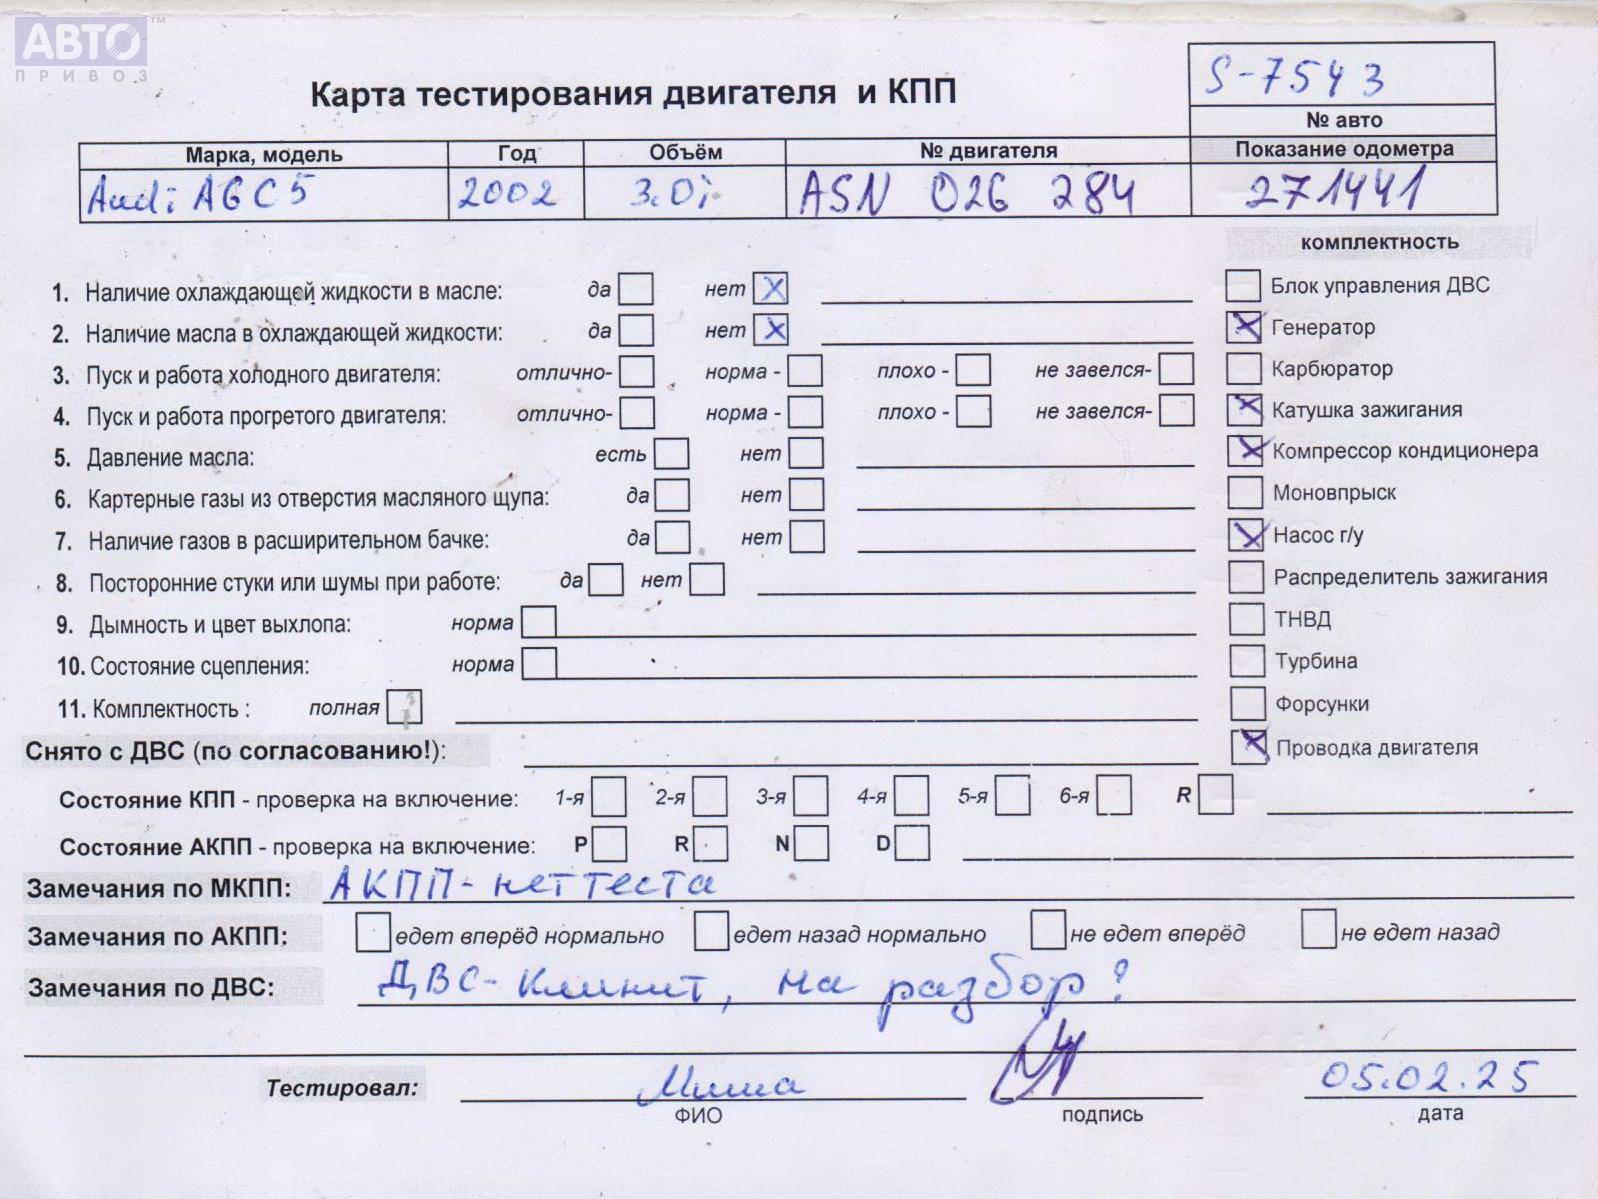 АВТО™
ПРИВОЗ
S-7543
Карта тестирования двигателя и КПП
№ авто
Марка, модель Год Объём № двигателя Показание одометра
Audi A6C5 2002 3.0i ASN 026 284 271441
комплектность
1. Наличие охлаждающей жидкости в масле: да нет X
Блок управления ДВС
2. Наличие масла в охлаждающей жидкости: да нет X
X Генератор
3. Пуск и работа холодного двигателя: отлично- норма - плохо - не завелся-
Карбюратор
4. Пуск и работа прогретого двигателя: отлично- норма - плохо - не завелся-
X Катушка зажигания
5. Давление масла: есть нет
X Компрессор кондиционера
6. Картерные газы из отверстия масляного щупа: да нет
Моновпрыск
7. Наличие газов в расширительном бачке: да нет
X Насос г/у
8. Посторонние стуки или шумы при работе: да нет
Распределитель зажигания
9. Дымность и цвет выхлопа: норма
ТНВД
10. Состояние сцепления: норма
Турбина
11. Комплектность : полная
Форсунки
Снято с ДВС (по согласованию!):
X Проводка двигателя
Состояние КПП - проверка на включение: 1-я 2-я 3-я 4-я 5-я 6-я R
Состояние АКПП - проверка на включение: P R N D
Замечания по МКПП: АКПП - нет теста
Замечания по АКПП: едет вперёд нормально едет назад нормально не едет вперёд не едет назад
Замечания по ДВС: ДВС - клинит, на разбор?
Тестировал: Миша 05.02.25
ФИО подпись дата